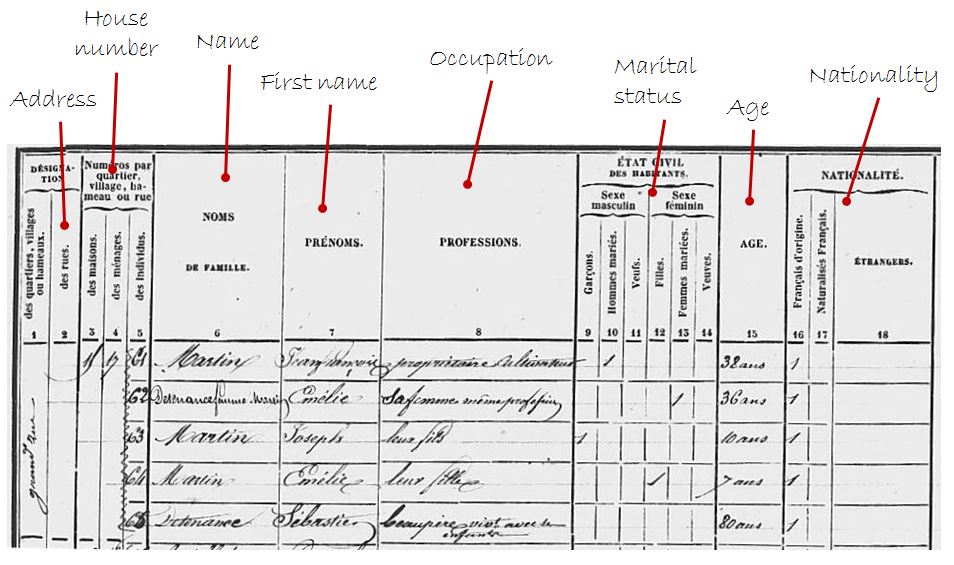 House
number
Name
Occupation
First name
Marital
status
Nationality
Address
Age
DÉSIGNA-
TION
Numéros par
quartier,
village, ha-
meau ou rue
NOMS
DE FAMILLE.
PRÉNOMS.
PROFESSIONS.
ÉTAT CIVIL
DES HABITANTS.
Sexe
masculin
Sexe
féminin
AGE.
NATIONALITÉ.
des quartiers, villages
ou hameaux.
des rues.
des maisons.
des ménages.
des individus.
Garçons.
Hommes mariés.
Veufs.
Filles.
Femmes mariées.
Veuves.
Français d'origine.
Naturalisés Français.
ÉTRANGERS.
1 2 3 4 5 6 7 8 9 10 11 12 13 14 15 16 17 18
17 61 Martin propriétaire cultivateur 1 38 ans 1
62 femme Martin Emélie sa femme même profession 1 36 ans 1
63 Martin Joseph leur fils 1 10 ans 1
64 Martin Emélie leur fille 1 7 ans 1
65 Sébastien beaupère vivt avec se 80 ans 1
enfants
grand rue